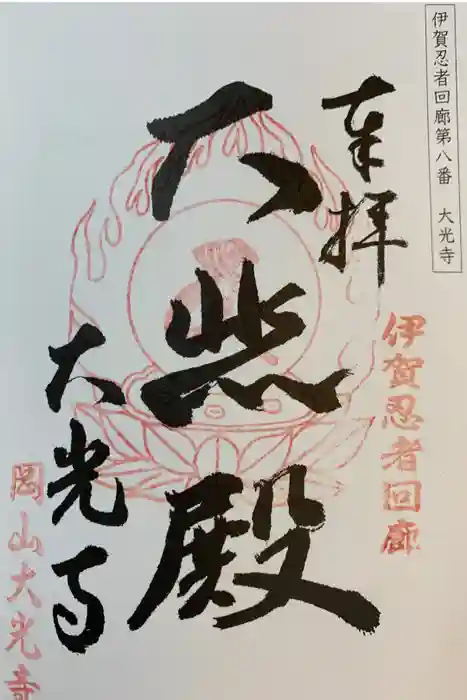 伊賀忍者回廊第八番　大光寺
伊賀忍者回廊
奉拝
大悲殿
大光寺
岡山大光寺